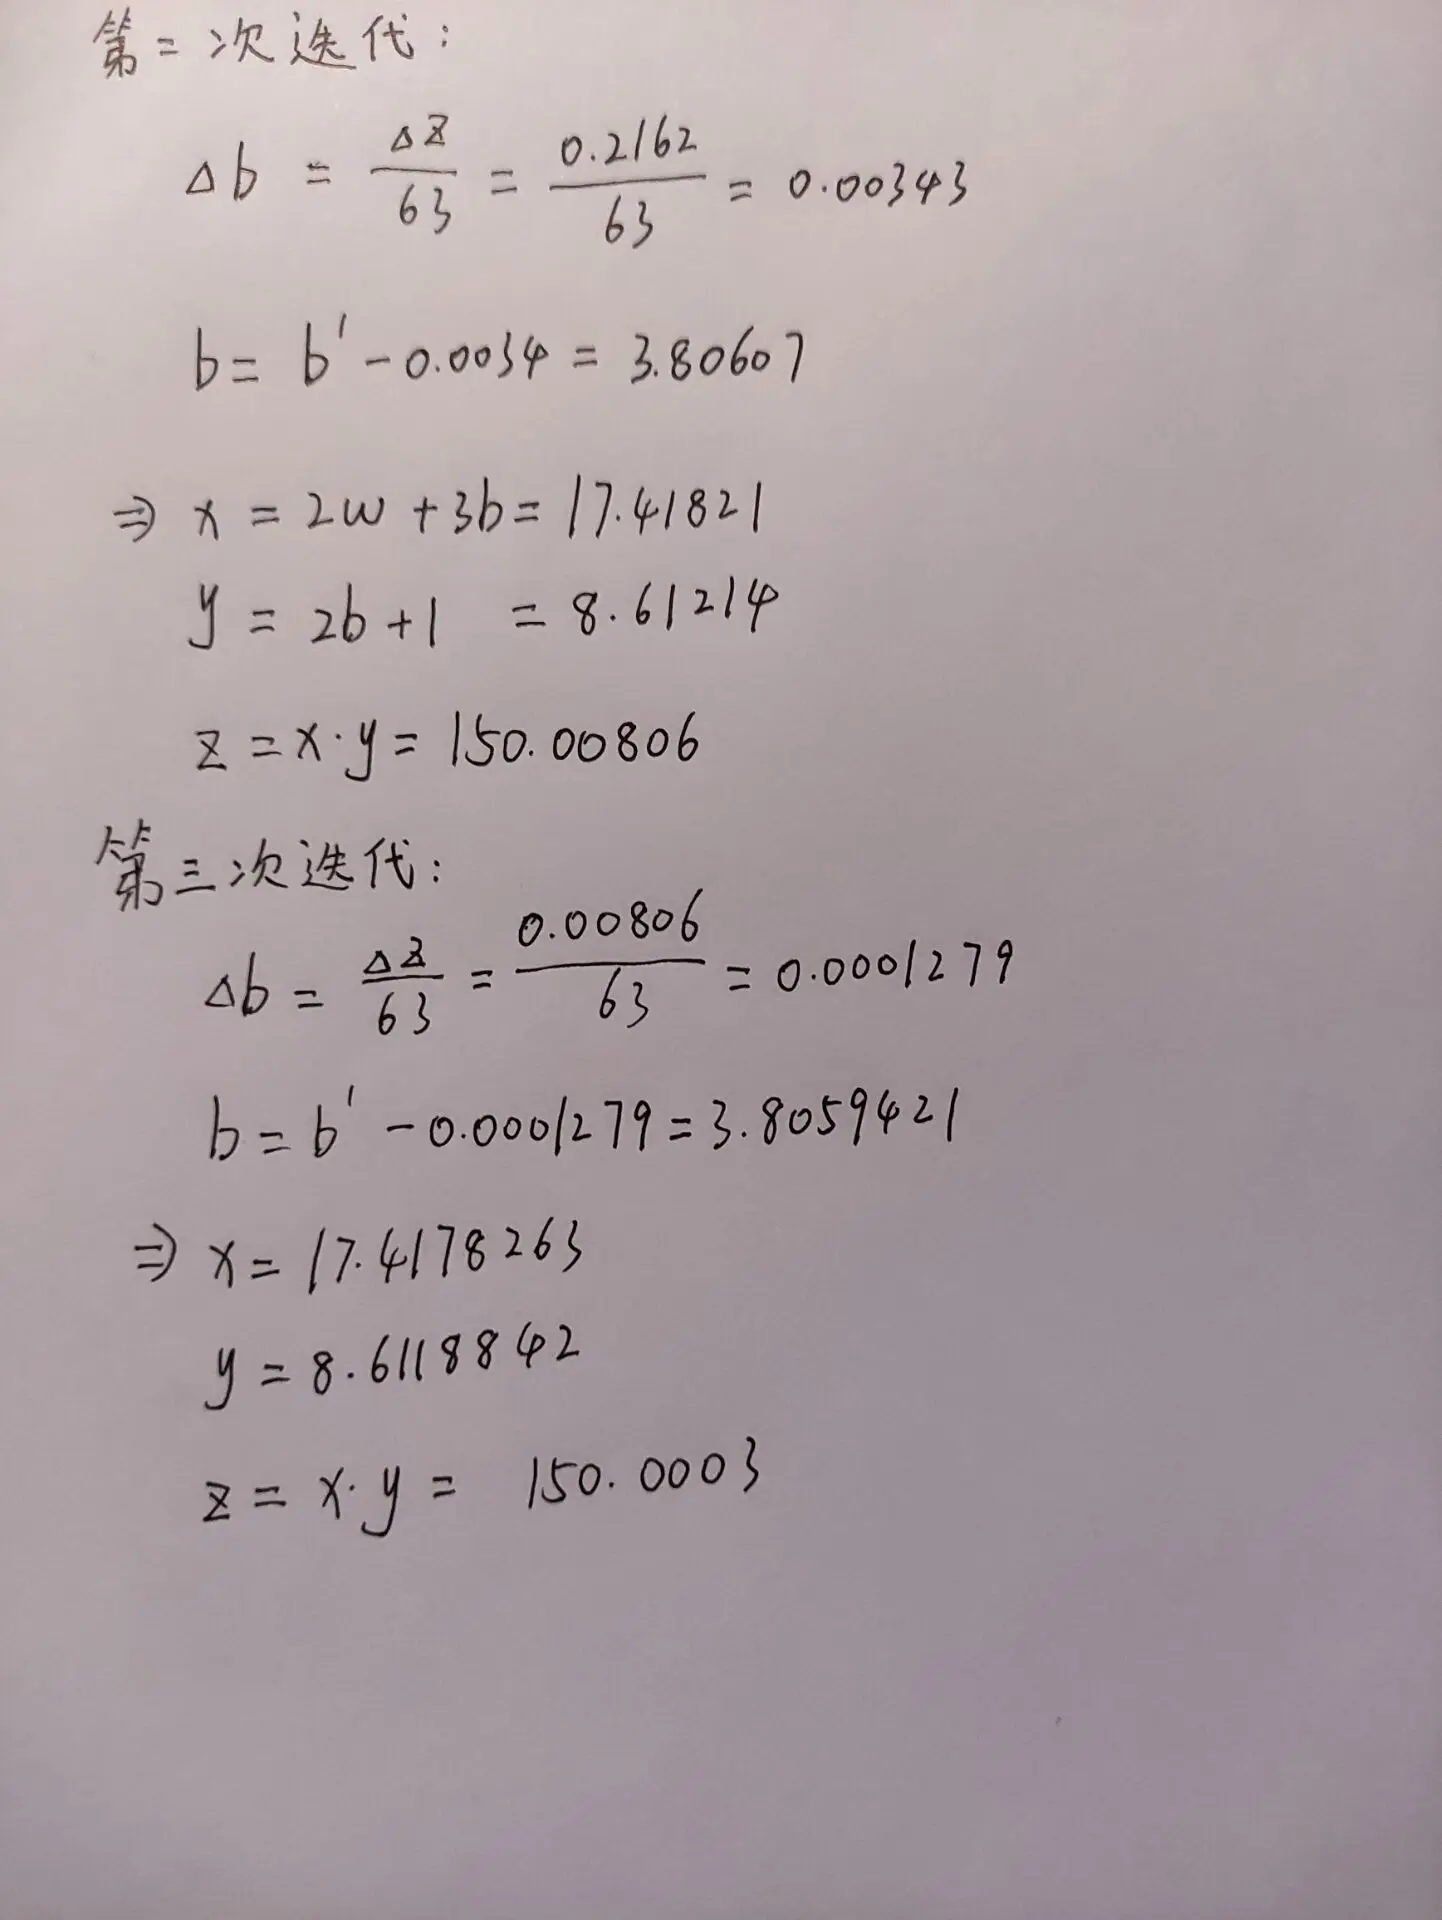 第二次迭代：
Δb = Δz/63 = 0.2162/63 = 0.00343
b = b' - 0.0034 = 3.80607
⇒ x = 2w + 3b = 17.41821
y = 2b + 1 = 8.61214
z = x·y = 150.00806
第三次迭代：
Δb = Δz/63 = 0.00806/63 = 0.0001279
b = b' - 0.0001279 = 3.8059421
⇒ x = 17.4178263
y = 8.6118842
z = x·y = 150.0003